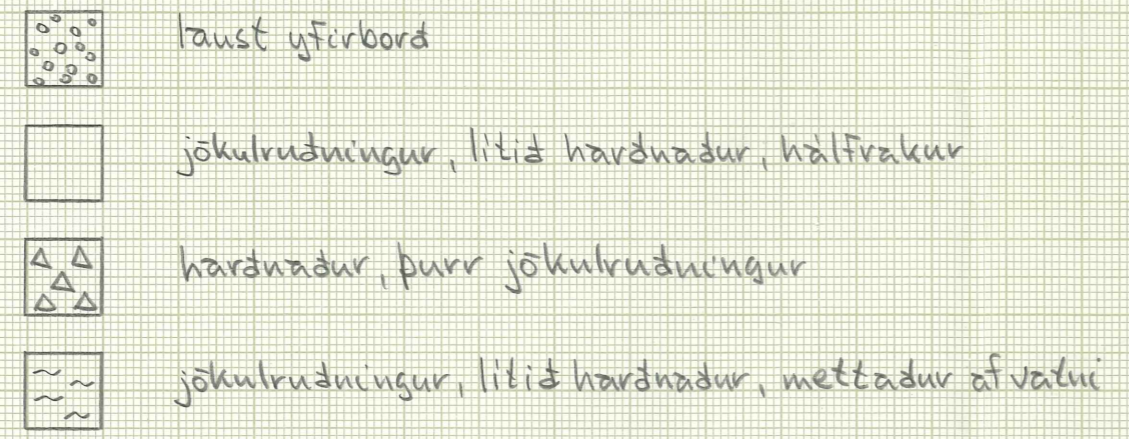 laust yfirborð
jökulruðningur, lítið harðnaður, hálfrakur
harðnaður, þurr jökulruðningur
jökulruðningur, lítið harðnaður, mettaður af vatni